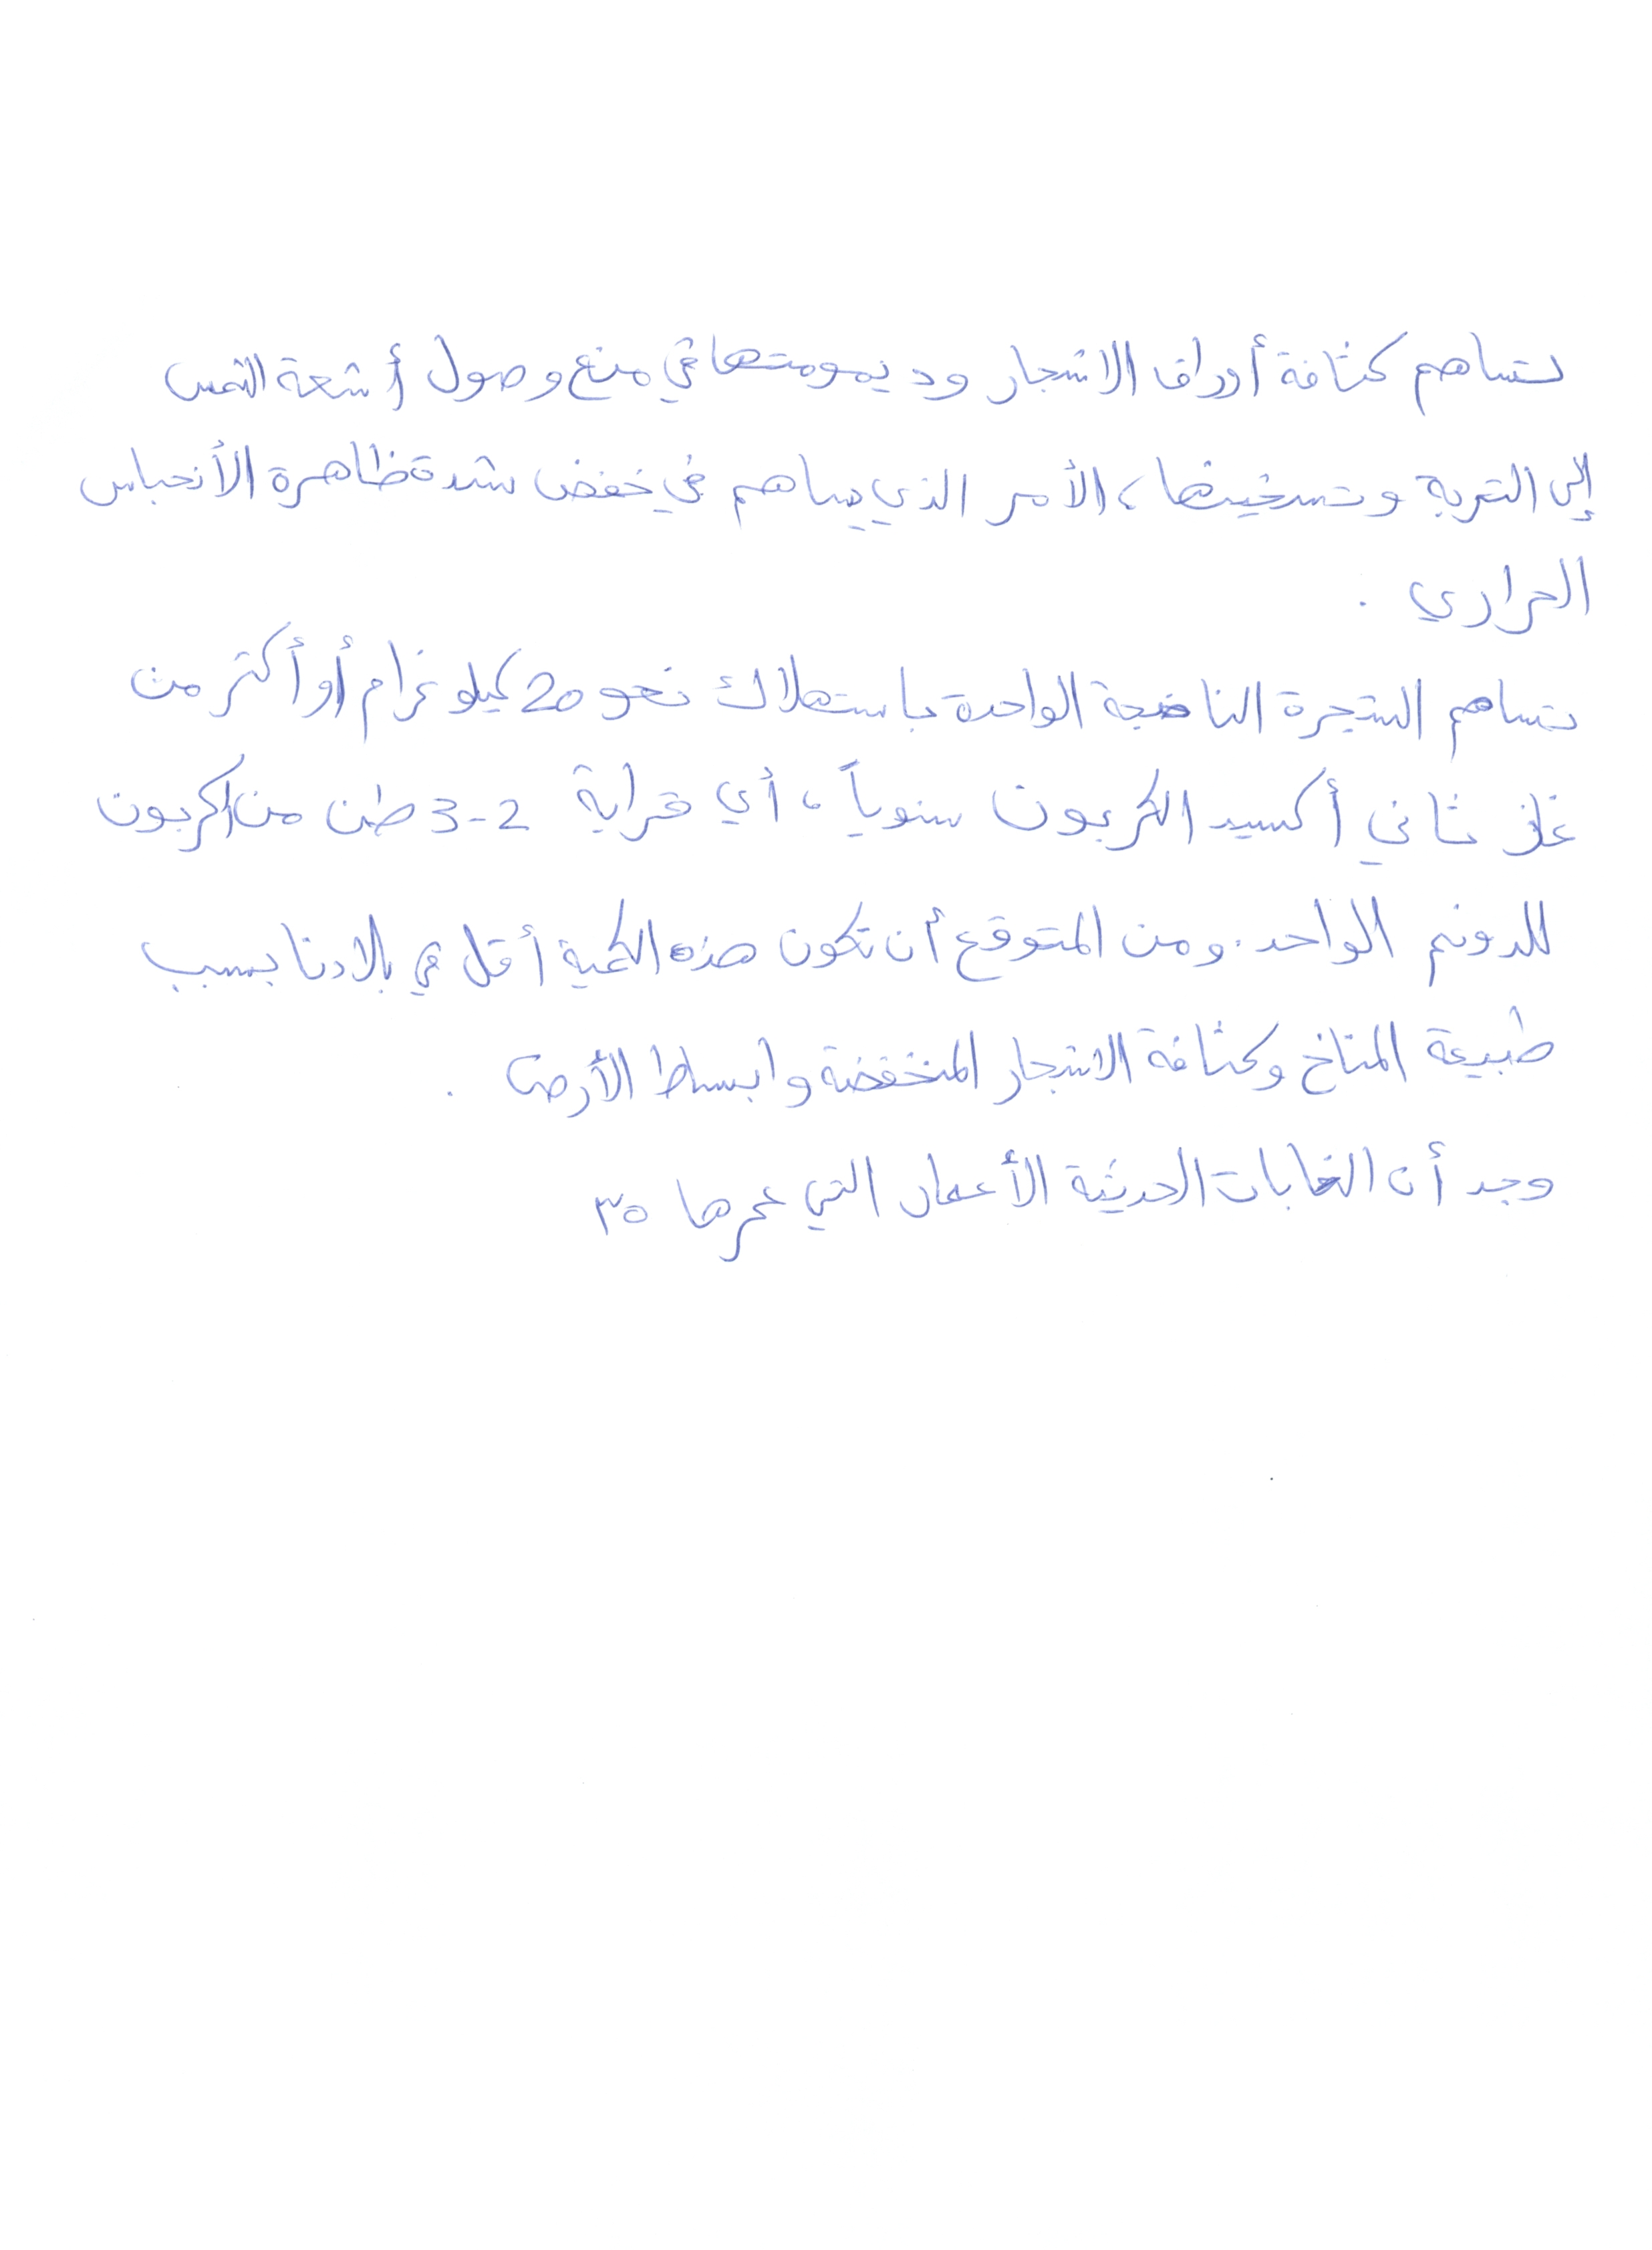 تساهم كثافة أوراق الاشجار وديمومتها في منع وصول أشعة الشمس
إلى التربة وتسخينها، الأمر الذي يساهم في خفض شدة ظاهرة الأنحباس
الحراري .
تساهم الشجرة الناضجة الواحدة باستهلاك نحو 20 كيلو غرام أو أكثر من
غاز ثاني أكسيد الكربون سنوياً، أي قرابة 2-3 طن من الكربون
للدونم الواحد. ومن المتوقع أن تكون هذه الكمية أقل في بلادنا بسبب
طبيعة المناخ وكثافة الاشجار المنخفضة وابساط الأرض .
وجد أن الغابات الحديثة الأعمار التي عمرها ٣٥